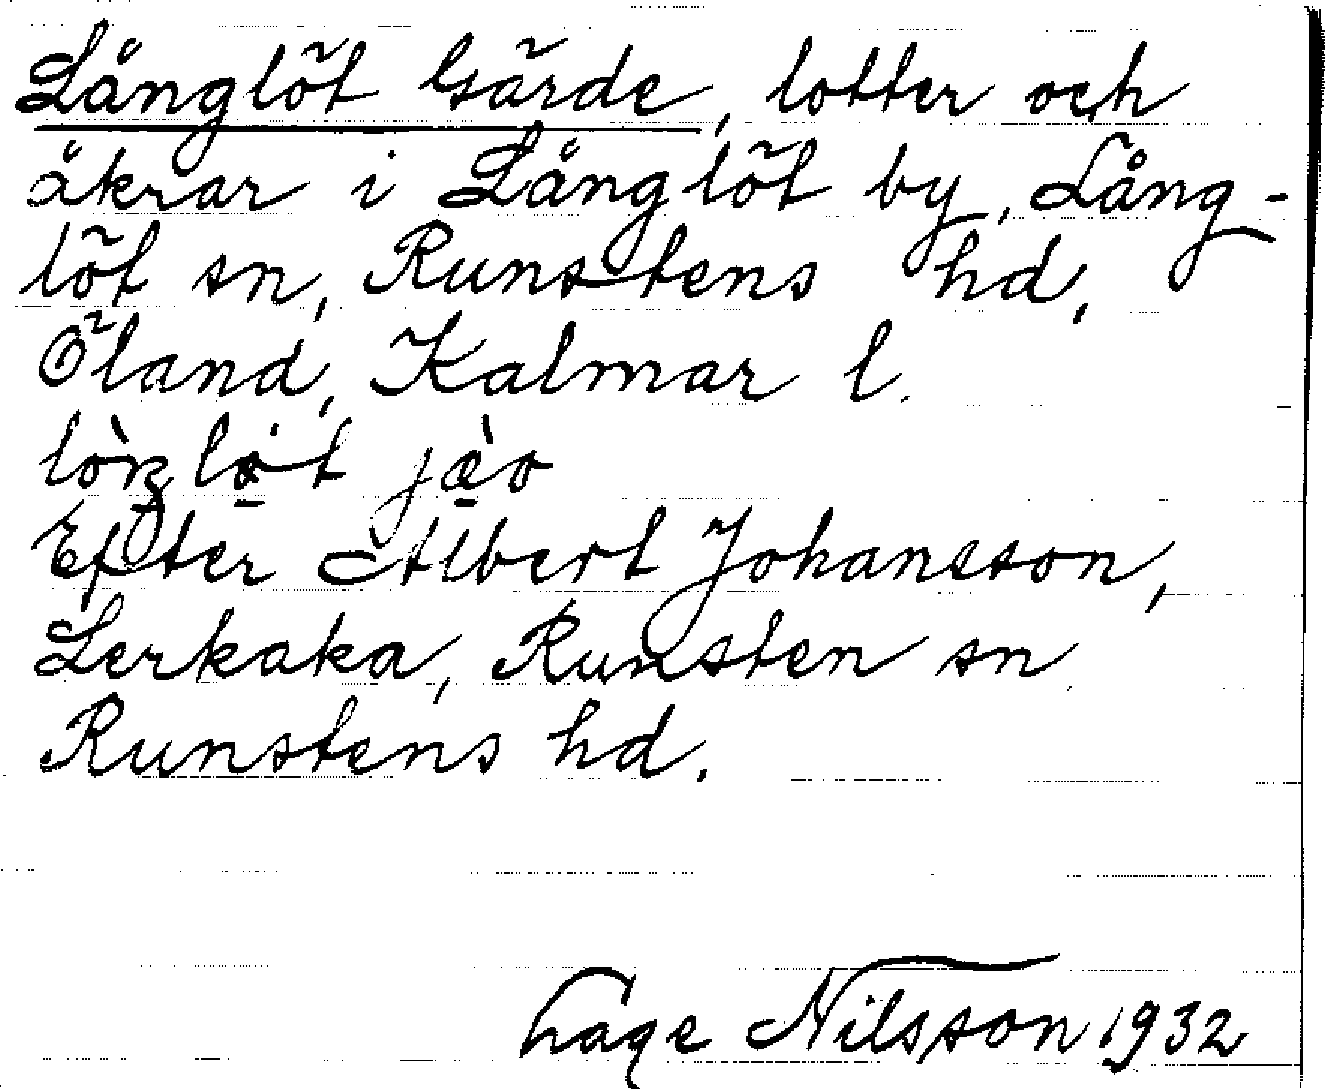 Långlöt Gärde, lotter och
åkrar i Långlöt by, Lång-
löt sn, Runstens hd,
Öland, Kalmar l.
Efter Albert Johansson,
Lerkaka, Runsten sn
Runstens hd.
Hage Nilsson 1932